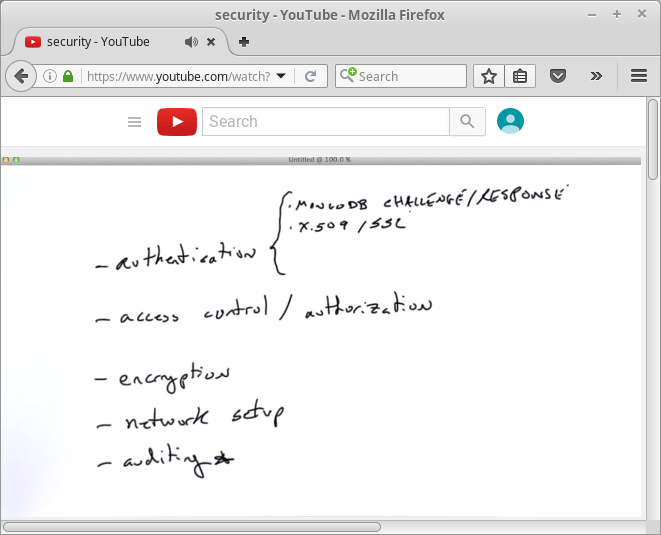 security - YouTube - Mozilla Firefox
security - YouTube
https://www.youtube.com/watch?
Search
Search
Untitled @ 100.0 %
· MONGODB CHALLENGE/RESPONSE
· X.509 / SSL
- authentication
- access control / authorization
- encryption
- network setup
- auditing *